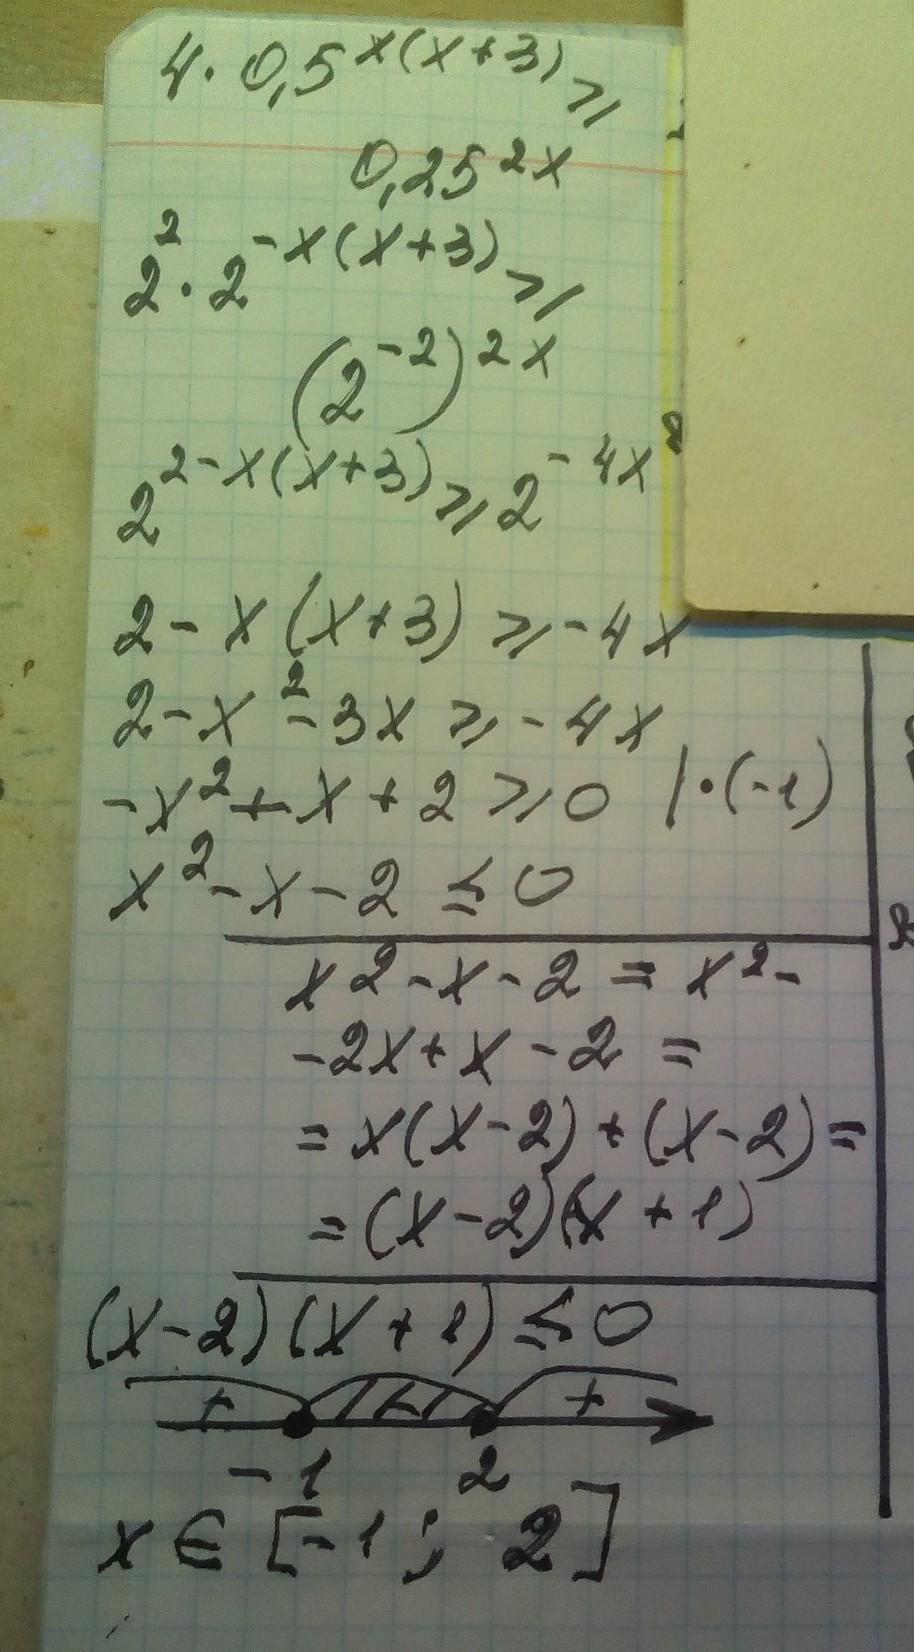 4 · 0,5^{x(x+3)} ⩾
0,25^{2x}
2^2 · 2^{-x(x+3)} ⩾
(2^{-2})^{2x}
2^{2-x(x+3)} ⩾ 2^{-4x}
2 - x(x+3) ⩾ -4x
2 - x^2 - 3x ⩾ -4x
-x^2 + x + 2 ⩾ 0 | · (-1)
x^2 - x - 2 ≤ 0
x^2 - x - 2 = x^2 -
- 2x + x - 2 =
= x(x-2) + (x-2) =
= (x-2)(x+1)
(x-2)(x+1) ≤ 0
+ - +
-1 2
x ∈ [-1; 2]